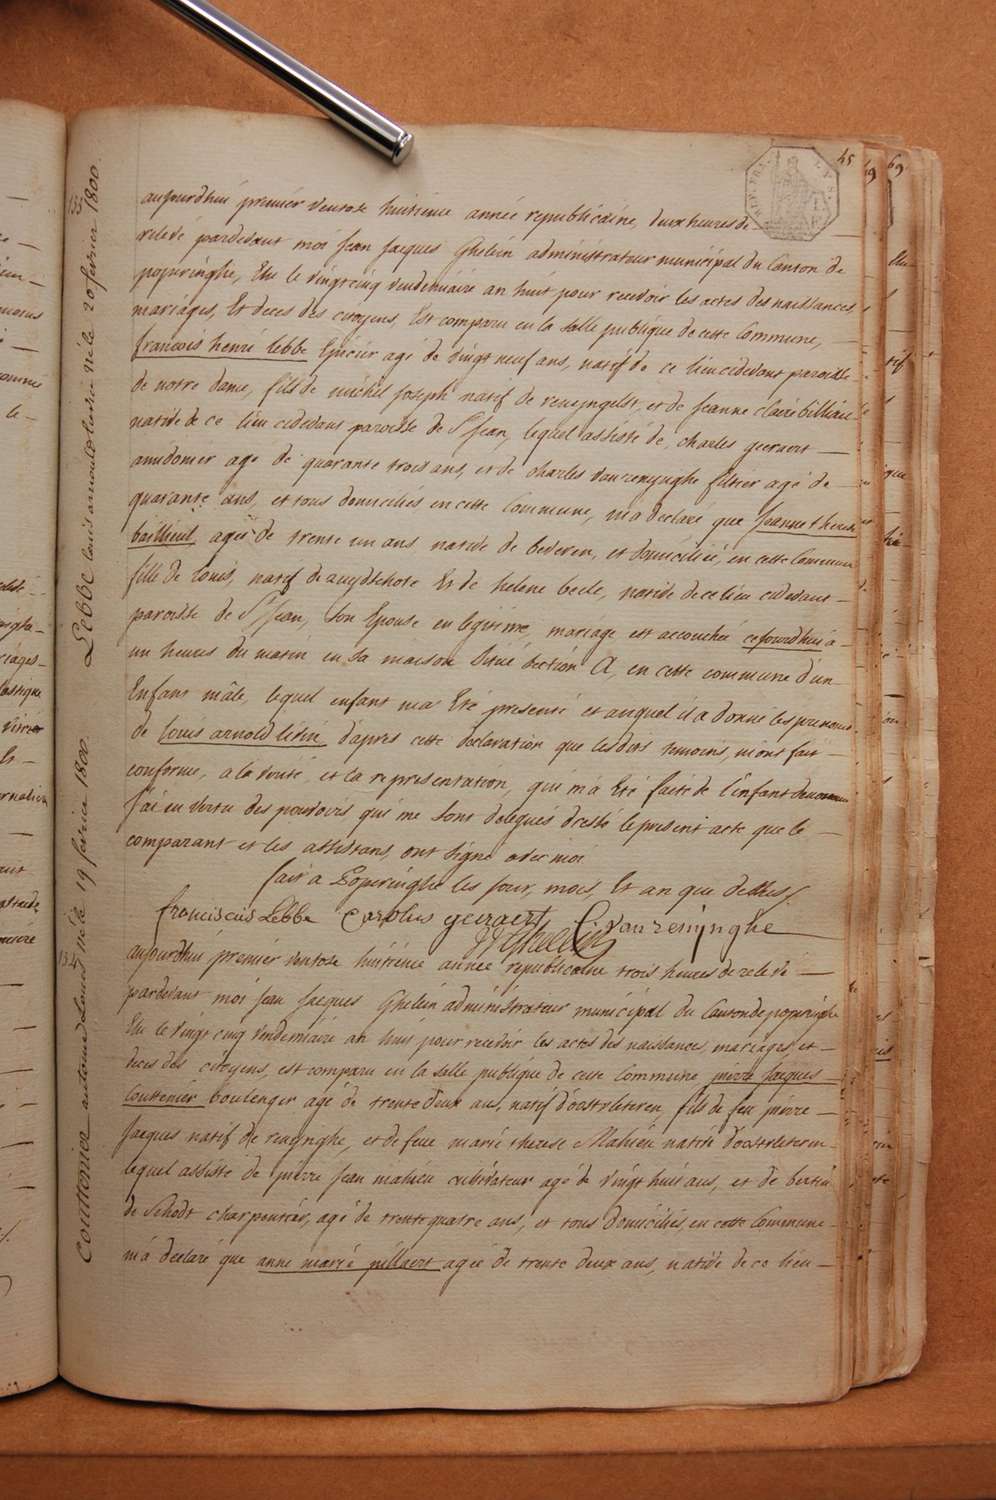 45
aujourdhui premier ventose huitieme année republicaine, deux heures de
relevé pardevant moi Jean Jacques Ghelein administrateur municipal du Canton de
poperinghe, Elu le vingt cinq vendemiaire an huit pour recevoir les actes des naissances,
mariages, Et deces des citoyens, Est comparu en la salle publique de cette Commune,
francois henri lebbe Epicier agé de vingt neuf ans, natif de ce lieu cidevant paroisse
de notre dame, fils de michel Joseph natif de reningelst, et de Jeanne claire billiau
native de ce lieu cidevant paroisse de St Jean, lequel assisté de, charles geeraert
amidonier agé de quarante trois ans, et de charles vanrenynghe filtier agé de
quarante ans, et tous domiciliés en cette Commune, m'a declaré que Jeanne therese
baillieul agée de trente un ans native de beveren, et domiciliée, en cette Commune
fille de Louis, natif de zuydschote Et de helene becle, native de ce lieu cidevant
paroisse de St Jean, son Epouse en legitime mariage est accouchée cejourdhui a
un heures du matin en sa maison située section A, en cette commune d'un
Enfant mâle, lequel enfant m'a Eté presenté et auquel il a donné les prenoms
de Louis arnold d'après cette declaration que lesdits temoins, m'ont fait
conforme, a la verité, et la representation, qui m'a Eté faite de l'infant
J'ai en vertu des pouvoirs qui me sont delegués dressé le present acte que le
comparant et les assistans, ont signé avec moi
fait a Poperinghe les Jour, mois, Et an que dessus
franciscus Lebbe Carolus geeraert C. vanrenynghe
JJ Ghelein
aujourdhui premier ventose huitieme année republicaine trois heures de relevé
pardevant moi Jean Jacques Ghelein administrateur municipal du Canton de poperinghe
Elu le vingt cinq vendemiaire an huit pour recevoir les actes des naissances, mariages, et
deces des citoyens, est comparu en la salle publique de cette Commune pierre Jacques
Couttenier boulenger agé de trente deux ans, natif d'oostvleteren, fils de feu pierre
Jacques natif de reninghe, et de feue marie therese Mahieu native d'oostvleteren
lequel assisté de pierre Jean mahieu cultivateur agé de vingt huit ans, et de bertin
de Schodt charpentier, agé de trente quatre ans, et tous domiciliés, en cette Commune
m'a declaré que anne marie pillaert agée de trente deux ans, native de ce lieu
Lebbe louis né le 20 fevrier 1800.
Couttenier antoine Louis né le 19 fevrier 1800.